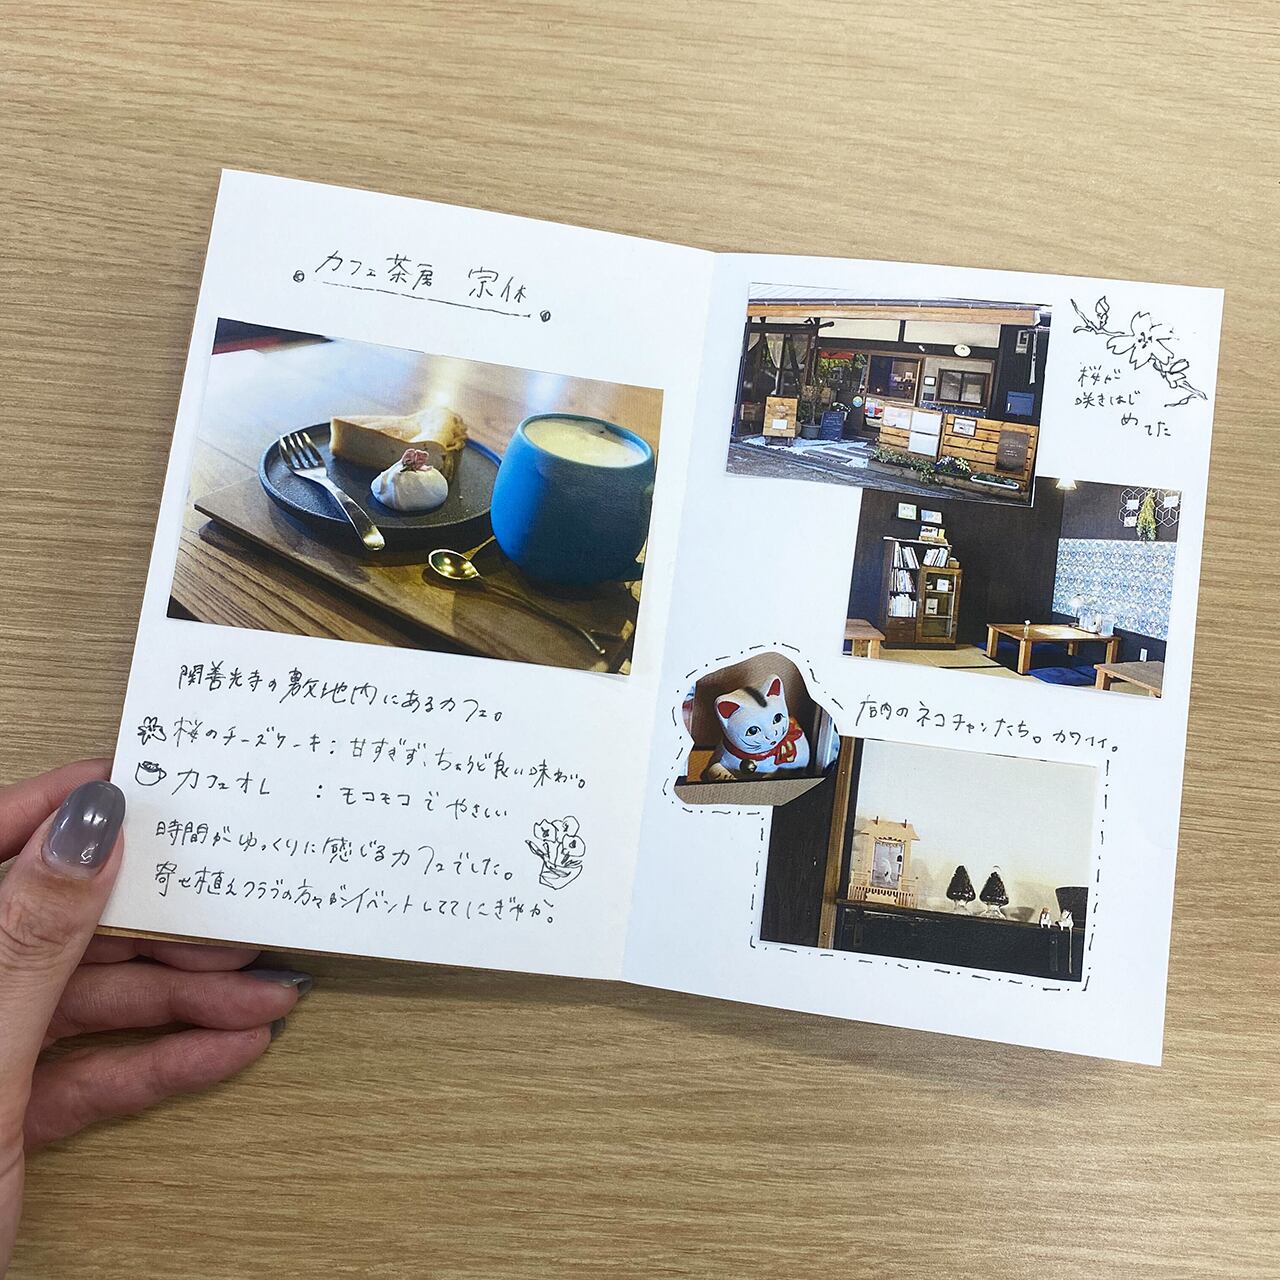 カフェ茶房 宗休
関善光寺の敷地内にあるカフェ。
桜のチーズケーキ：甘すぎず、ちょうど良い味わい。
カフェオレ ：モコモコでやさしい
時間がゆっくりに感じるカフェでした。
寄せ植えクラブの方々がイベントしててにぎやか。
桜が
咲きはじ
めてた
店内のネコチャンたち。カワイイ。